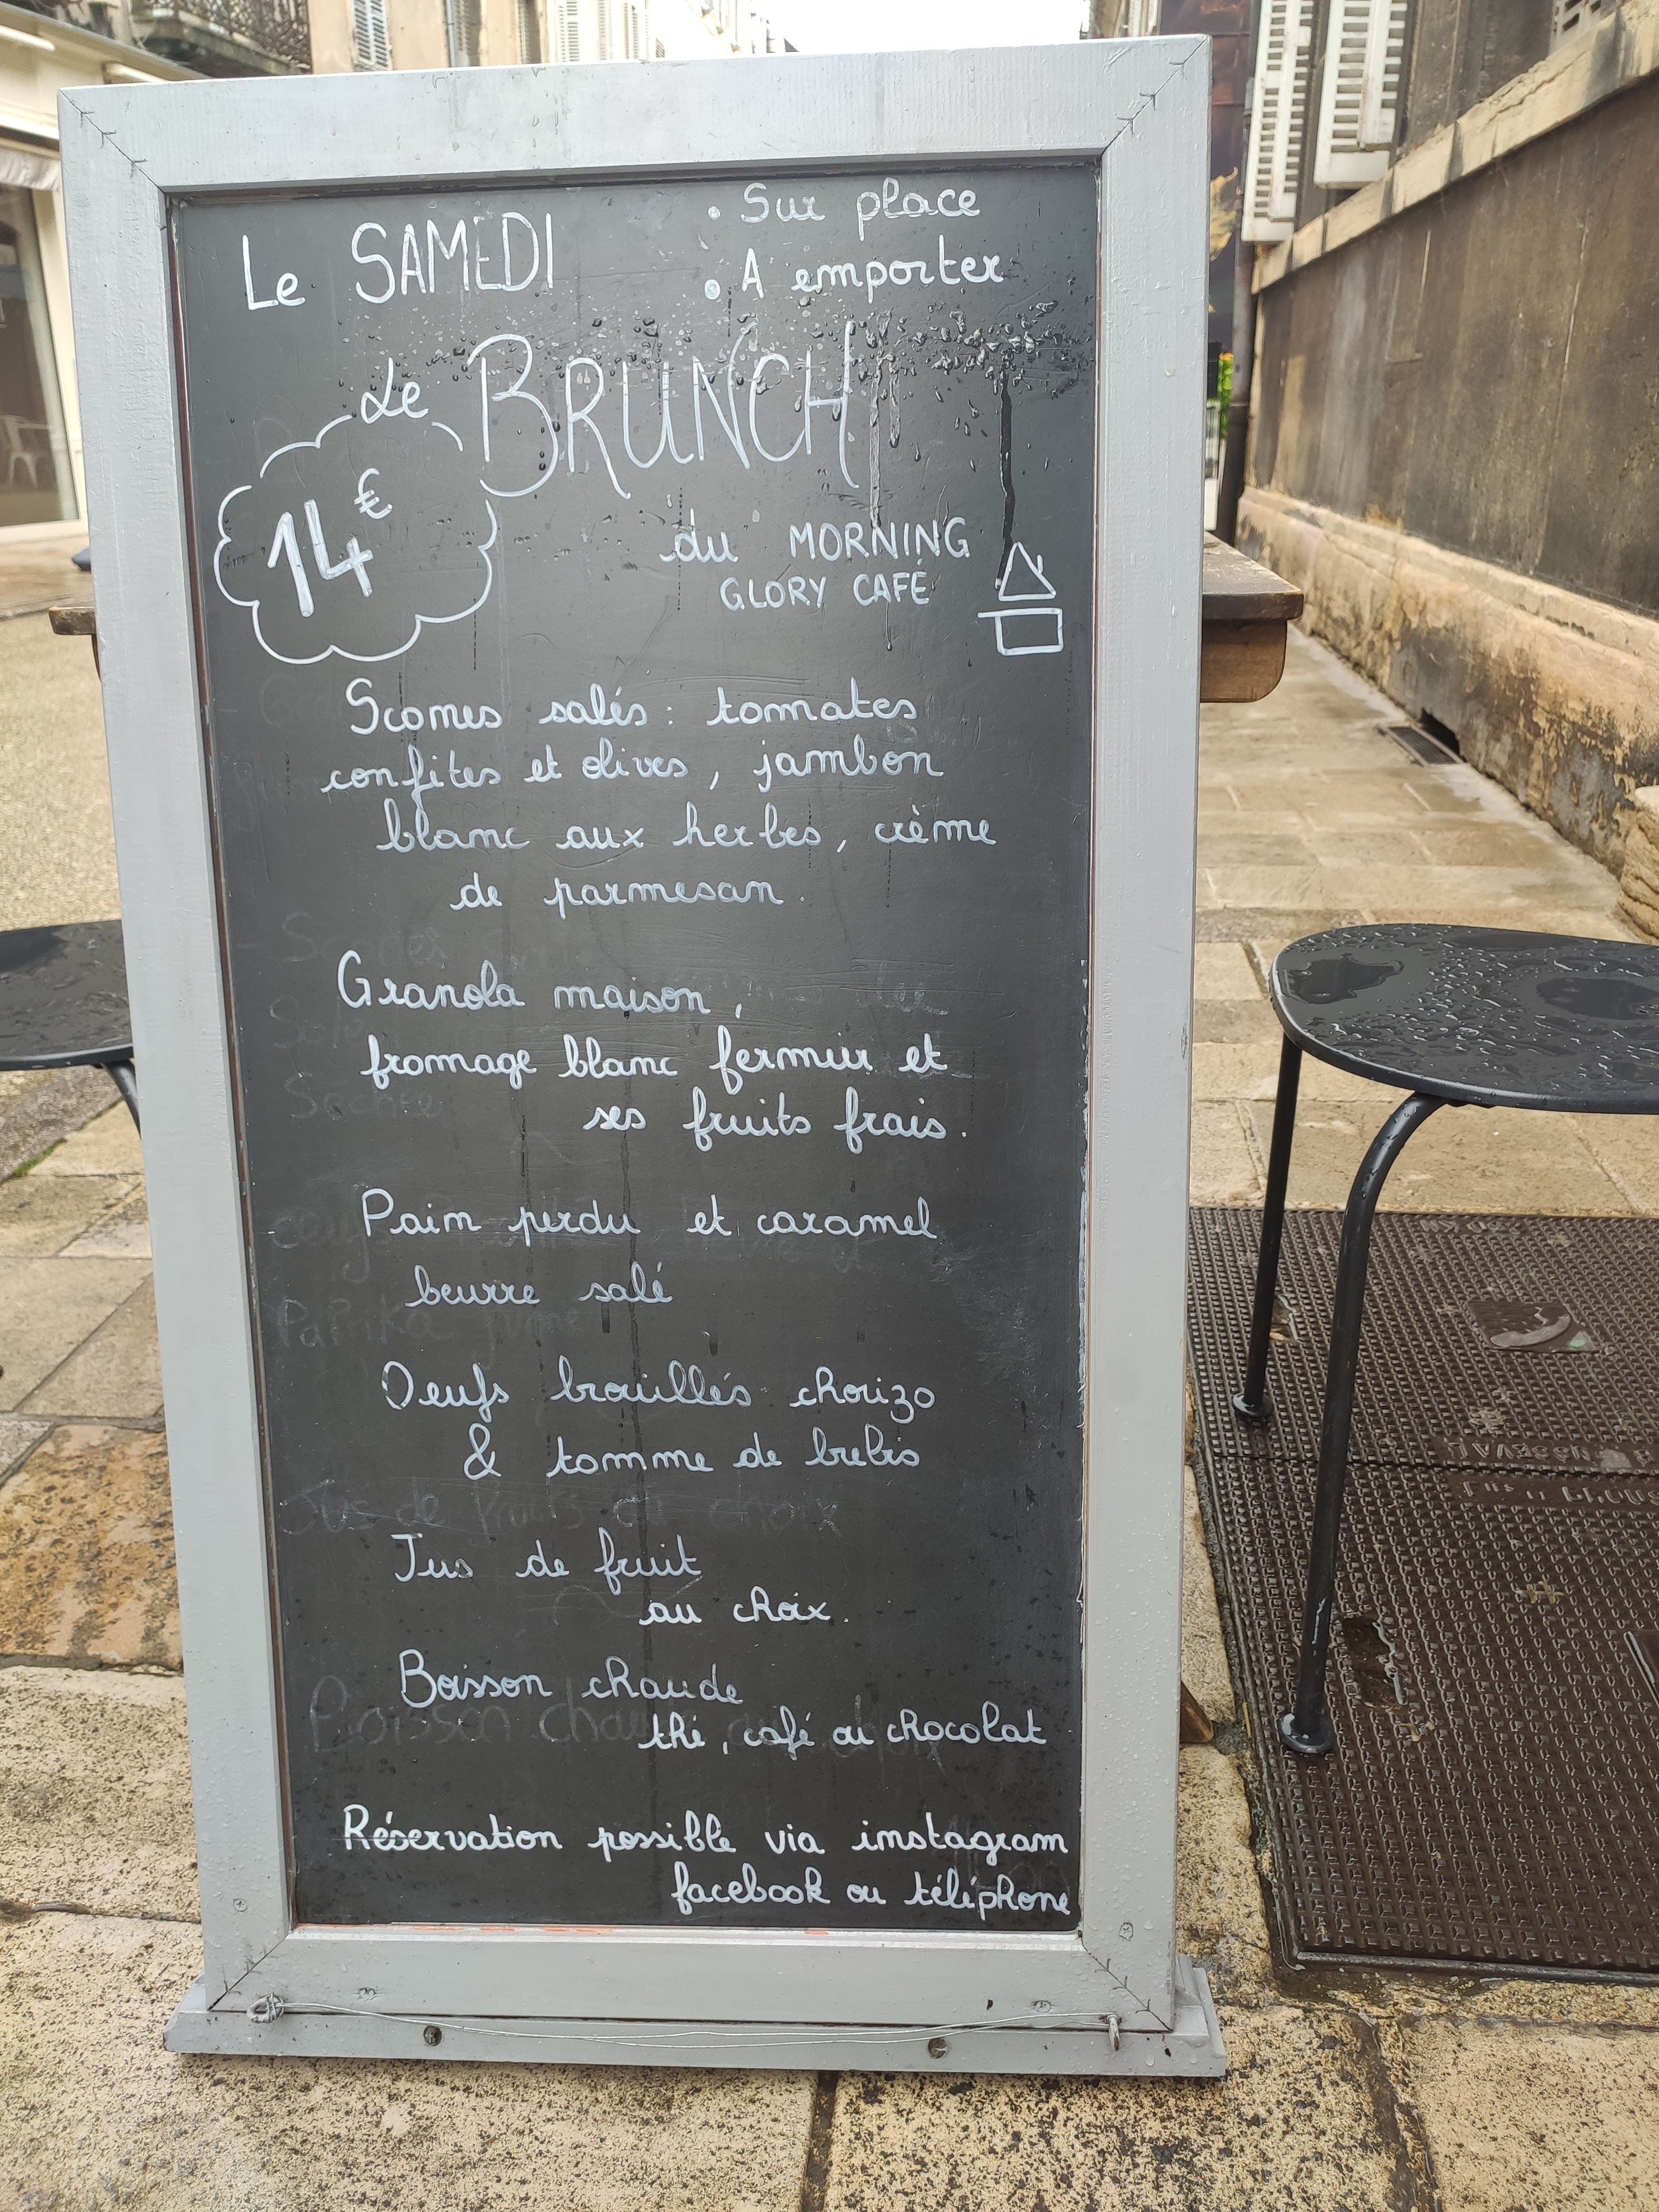 Le SAMEDI
• Sur place
• A emporter
Le BRUNCH
14€
du MORNING
GLORY CAFÉ
Scones salés : tomates
confites et olives, jambon
blanc aux herbes, crème
de parmesan.
Granola maison,
fromage blanc fermier et
ses fruits frais.
Pain perdu et caramel
beurre salé
Oeufs brouillés chorizo
& tomme de brebis
Jus de fruit
au choix.
Boisson chaude
thé, café ou chocolat
Réservation possible via instagram
facebook ou téléphone